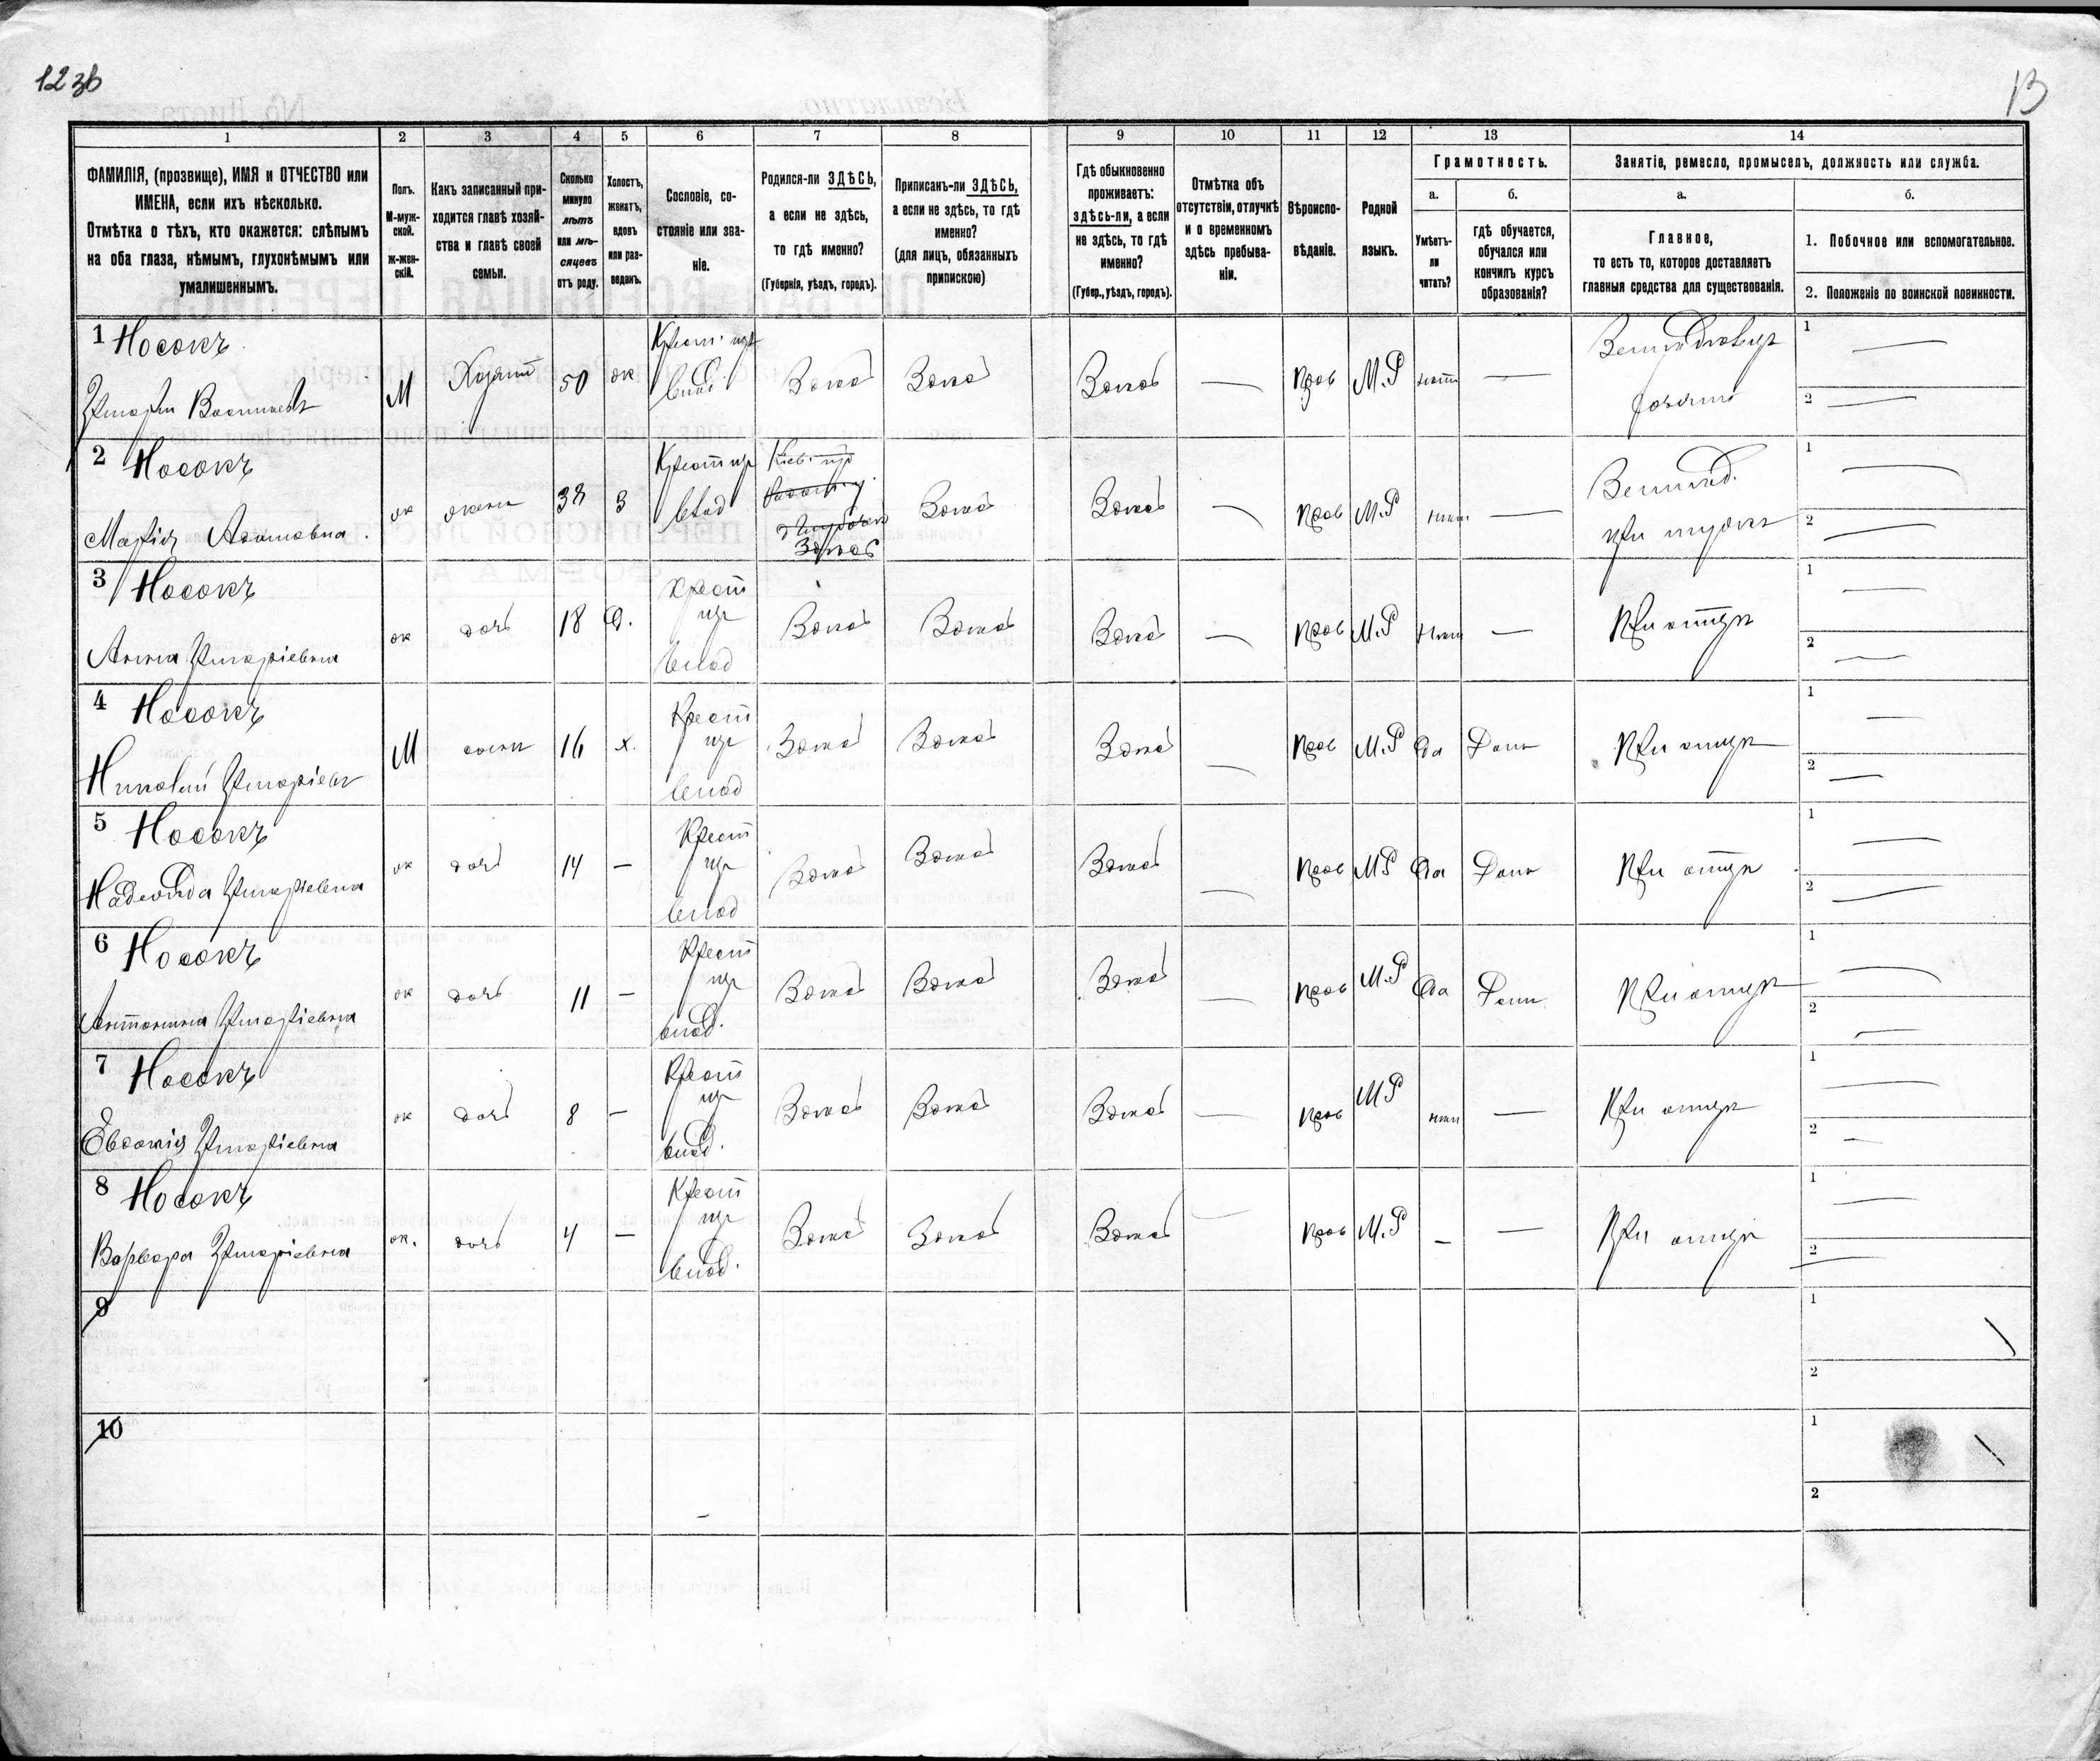 12 зв
13
1
2
3
4
5
6
7
8
9
10
11
12
13
14
ФАМИЛІЯ, (прозвище), ИМЯ и ОТЧЕСТВО или
ИМЕНА, если ихъ нѣсколько.
Отмѣтка о тѣхъ, кто окажется: слѣпымъ
на оба глаза, нѣмымъ, глухонѣмымъ или
умалишеннымъ.
Полъ.
М-муж-
ской.
ж-жен-
скій.
Какъ записанный при-
ходится главѣ хозяй-
ства и главѣ своей
семьи.
Сколько
минуло
лѣтъ
или мѣ-
сяцевъ
отъ роду.
Холостъ,
женатъ,
вдовъ
или раз-
веденъ.
Сословіе, со-
стояніе или зва-
ніе.
Родился-ли ЗДѢСЬ,
а если не здѣсь,
то гдѣ именно?
(Губернія, уѣздъ, городъ).
Приписанъ-ли ЗДѢСЬ,
а если не здѣсь, то гдѣ
именно?
(для лицъ, обязанныхъ
припискою)
Гдѣ обыкновенно
проживаетъ:
здѣсь-ли, а если
не здѣсь, то гдѣ
именно?
(Губер., уѣздъ, городъ).
Отмѣтка объ
отсутствіи, отлучкѣ
и о временномъ
здѣсь пребыва-
ніи.
Вѣроиспо-
вѣданіе.
Родной
языкъ.
Грамотность.
а.
б.
Умѣетъ-
ли
читать?
гдѣ обучается,
обучался или
кончилъ курсъ
образованія?
Занятіе, ремесло, промыселъ, должность или служба.
а.
б.
Главное,
то есть то, которое доставляетъ
главныя средства для существованія.
1. Побочное или вспомогательное.
2. Положеніе по воинской повинности.
1 Носокъ
М Хозяин 50 ж Крест. из влад. Здѣсь Здѣсь Здѣсь — Прав М.Р нѣт — 1 —
2 —
2 Носокъ
Марія Антоновна.
ж жена 3 Крест из влад Кіев. губ Здѣсь Здѣсь Здѣсь — Прав М.Р — при мужѣ 1 —
2 —
3 Носокъ
Анна
ж дочь 18 Д. Крест из влад Здѣсь Здѣсь Здѣсь — Прав М.Р Нѣт — При отцѣ 1 —
2 —
4 Носокъ
Николай
М сынъ 16 х. Крест из влад Здѣсь Здѣсь Здѣсь — Прав М.Р Да При отцѣ 1 —
2 —
5 Носокъ
Надежда
ж дочь 14 — Крест из влад Здѣсь Здѣсь Здѣсь — Прав МР Да При отцѣ 1 —
2 —
6 Носокъ
Антонина
ж дочь 11 — Крест из влад. Здѣсь Здѣсь Здѣсь — Прав М.Р Да При отцѣ 1 —
2 —
7 Носокъ
ж дочь 8 — Крест из влад. Здѣсь Здѣсь Здѣсь — Прав МР нѣт — При отцѣ 1 —
2 —
8 Носокъ
Варвара
ж. дочь 4 — Крест из влад. Здѣсь Здѣсь Здѣсь — Прав М.Р — — При отцѣ 1 —
2 —
9
1
2
10
1
2